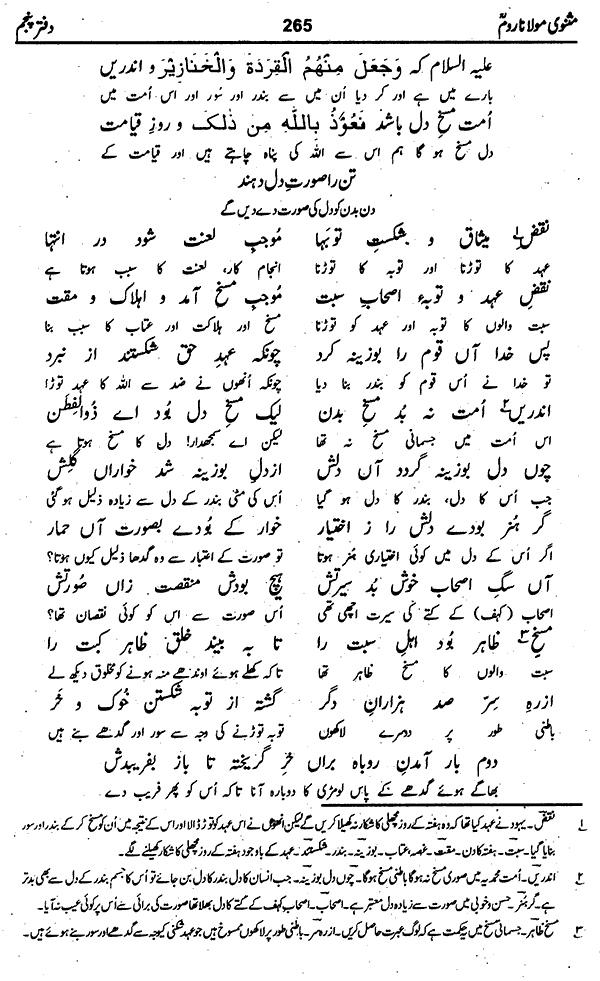 مثنوی مولانا روم 265 دفتر پنجم
علیہ السلام کہ وَجَعَلَ مِنْهُمُ الْقِرَدَةَ وَالْخَنَازِيْرَ و اندریں
بارے میں ہے اور کر دیا اُن میں سے بندر اور سُور اور اس اُمت میں
اُمت مسخِ دل باشد نَعُوْذُ بِاللّٰهِ مِنْ ذٰلِکَ و روزِ قیامت
دل مسخ ہو گا ہم اس سے اللہ کی پناہ چاہتے ہیں اور قیامت کے
تن را صورتِ دل دہند
دن بدن کو دل کی صورت دے دیں گے
نقضِ ۱ میثاق و شکستِ توبہا موجبِ لعنت شود در انتہا
عہد کا توڑنا اور توبہ کا توڑنا انجام کار، لعنت کا سبب ہوتا ہے
نقضِ عہد و توبۂ اصحابِ سبت موجبِ مسخ آمد و اہلاک و مقت
سبت والوں کا توبہ اور عہد کو توڑنا مسخ اور ہلاکت اور عتاب کا سبب بنا
پس خدا آں قوم را بوزینہ کرد چونکہ عہدِ حق شکستند از نبرد
تو خدا نے اُس قوم کو بندر بنا دیا چونکہ اُنھوں نے ضد سے اللہ کا عہد توڑا
اندریں ۲ اُمت نہ بُد مسخِ بدن لیک مسخِ دل بُود اے ذُوالفِطَن
اس اُمت میں جسمانی مسخ نہ تھا لیکن اے سمجھدار! دل کا مسخ ہوتا ہے
چوں دل بوزینہ گردد آں دلش از دلِ بوزینہ شد خواراں گلِش
جب اُس کا دل، بندر کا دل ہو گیا اُس کی مٹی بندر کے دل سے زیادہ ذلیل ہو گئی
گر ہُنر بودے دلش را ز اختیار خوار کے بُودے بصورت آں حمار
اگر اُس کے دل میں کوئی اختیاری ہنر ہوتا تو صورت کے اعتبار سے وہ گدھا ذلیل کیوں ہوتا؟
آں سگِ اصحاب خوش بُد سیرتش ہیچ بودش منقصت زاں صُورتش
اصحابِ (کہف) کے کتے کی سیرت اچھی تھی اُس صورت سے اس کو کوئی نقصان تھا؟
مسخِ ۳ ظاہر بُود اہلِ سبت را تا بہ بیند خلق ظاہر کبت را
سبت والوں کا مسخ ظاہر تھا تاکہ کھلے ہوئے اوندھے منہ ہونے کو مخلوق دیکھ لے
از رہِ سِرّ صد ہزارانِ دگر گشتہ از توبہ شکستن خُوک و خر
باطنی طور پر دوسرے لاکھوں توبہ توڑنے کی وجہ سے سور اور گدھے بنے ہیں
دوم بار آمدنِ روباہ براں خرِ گریختہ تا باز بفریبدش
بھاگے ہوئے گدھے کے پاس لومڑی کا دوبارہ آنا تاکہ اُس کو پھر فریب دے
۱ نقض۔ یہود نے عہد کیا تھا کہ وہ ہفتہ کے روز مچھلی کا شکار نہ کھیلا کریں گے لیکن انھوں نے اس عہد کو توڑ ڈالا اور اس کے نتیجہ میں اُن کو مسخ کر کے بندر اور سور
بنایا گیا۔ سبت۔ ہفتہ کا دن۔ مقت۔ غصہ، عتاب۔ بوزینہ۔ بندر۔ شکستند۔ عہد کے باوجود ہفتہ کے روز مچھلی کا شکار کھیلنے لگے۔
۲ اندریں۔ اُمتِ محمدیہ میں صوری مسخ نہ ہوگا باطنی مسخ ہوگا۔ چوں دل بوزینہ۔ جب انسان کا دل بندر کا دل بن جائے تو اُس کا جسم بندر کے دل سے بھی بدتر
ہے۔ گر ہُنر۔ حسن و خوبی میں صورت سے زیادہ دل معتبر ہے۔ اصحاب۔ اصحابِ کہف کے کتے کا دل بھلا تھا صورت کی برائی سے اُس پر کوئی عیب نہ آیا۔
۳ مسخ ظاہر۔ جسمانی مسخ میں یہ حکمت ہے کہ لوگ عبرت حاصل کریں۔ از رہِ سر۔ باطنی طور پر لاکھوں ممسوخ ہیں جو عہد شکنی کیوجہ سے گدھے اور سور بنے ہوئے ہیں۔